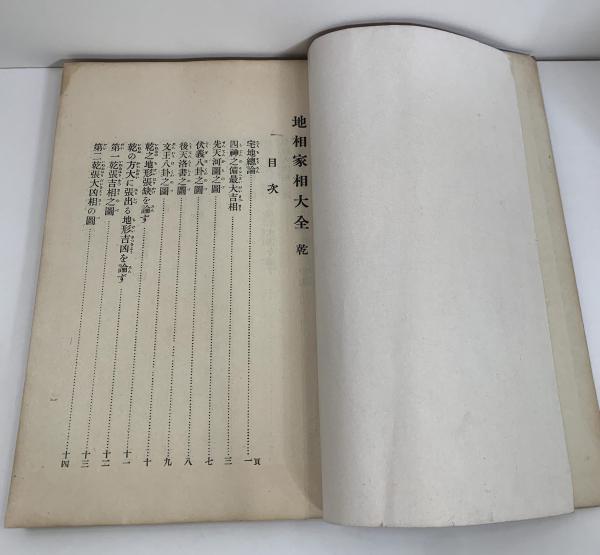 地相家相大全 乾
目次
宅地總論……一頁
四神之備最大吉相……三
先天河圖之圖……七
伏義八卦之圖……八
後天洛書之圖……八
文王八卦之圖……九
乾之地形張缺を論ず……十
乾の方大に張出る地形吉凶を論ず……十一
第一乾張吉相之圖……十二
第二乾張大凶相の圖……十三
十四